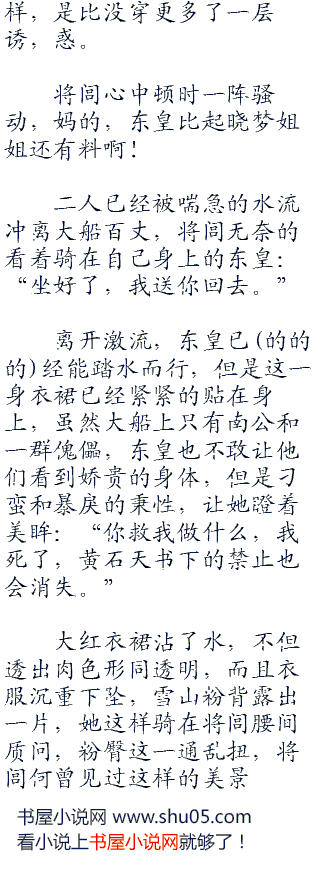 样，是比没穿更多了一层
诱，惑。
将闾心中顿时一阵骚
动，妈的，东皇比起晓梦姐
姐还有料啊！
二人已经被喘急的水流
冲离大船百丈，将闾无奈的
看着骑在自己身上的东皇：
“坐好了，我送你回去。”
离开激流，东皇已(的的
的)经能踏水而行，但是这一
身衣裙已经紧紧的贴在身
上，虽然大船上只有南公和
一群傀儡，东皇也不敢让他
们看到娇贵的身体，但是刁
蛮和暴戾的秉性，让她瞪着
美眸：“你救我做什么，我
死了，黄石天书下的禁止也
会消失。”
大红衣裙沾了水，不但
透出肉色形同透明，而且衣
服沉重下坠，雪山粉背露出
一片，她这样骑在将闾腰间
质问，粉臀这一通乱扭，将
闾何曾见过这样的美景
书屋小说网 www.shu05.com
看小说上书屋小说网就够了！